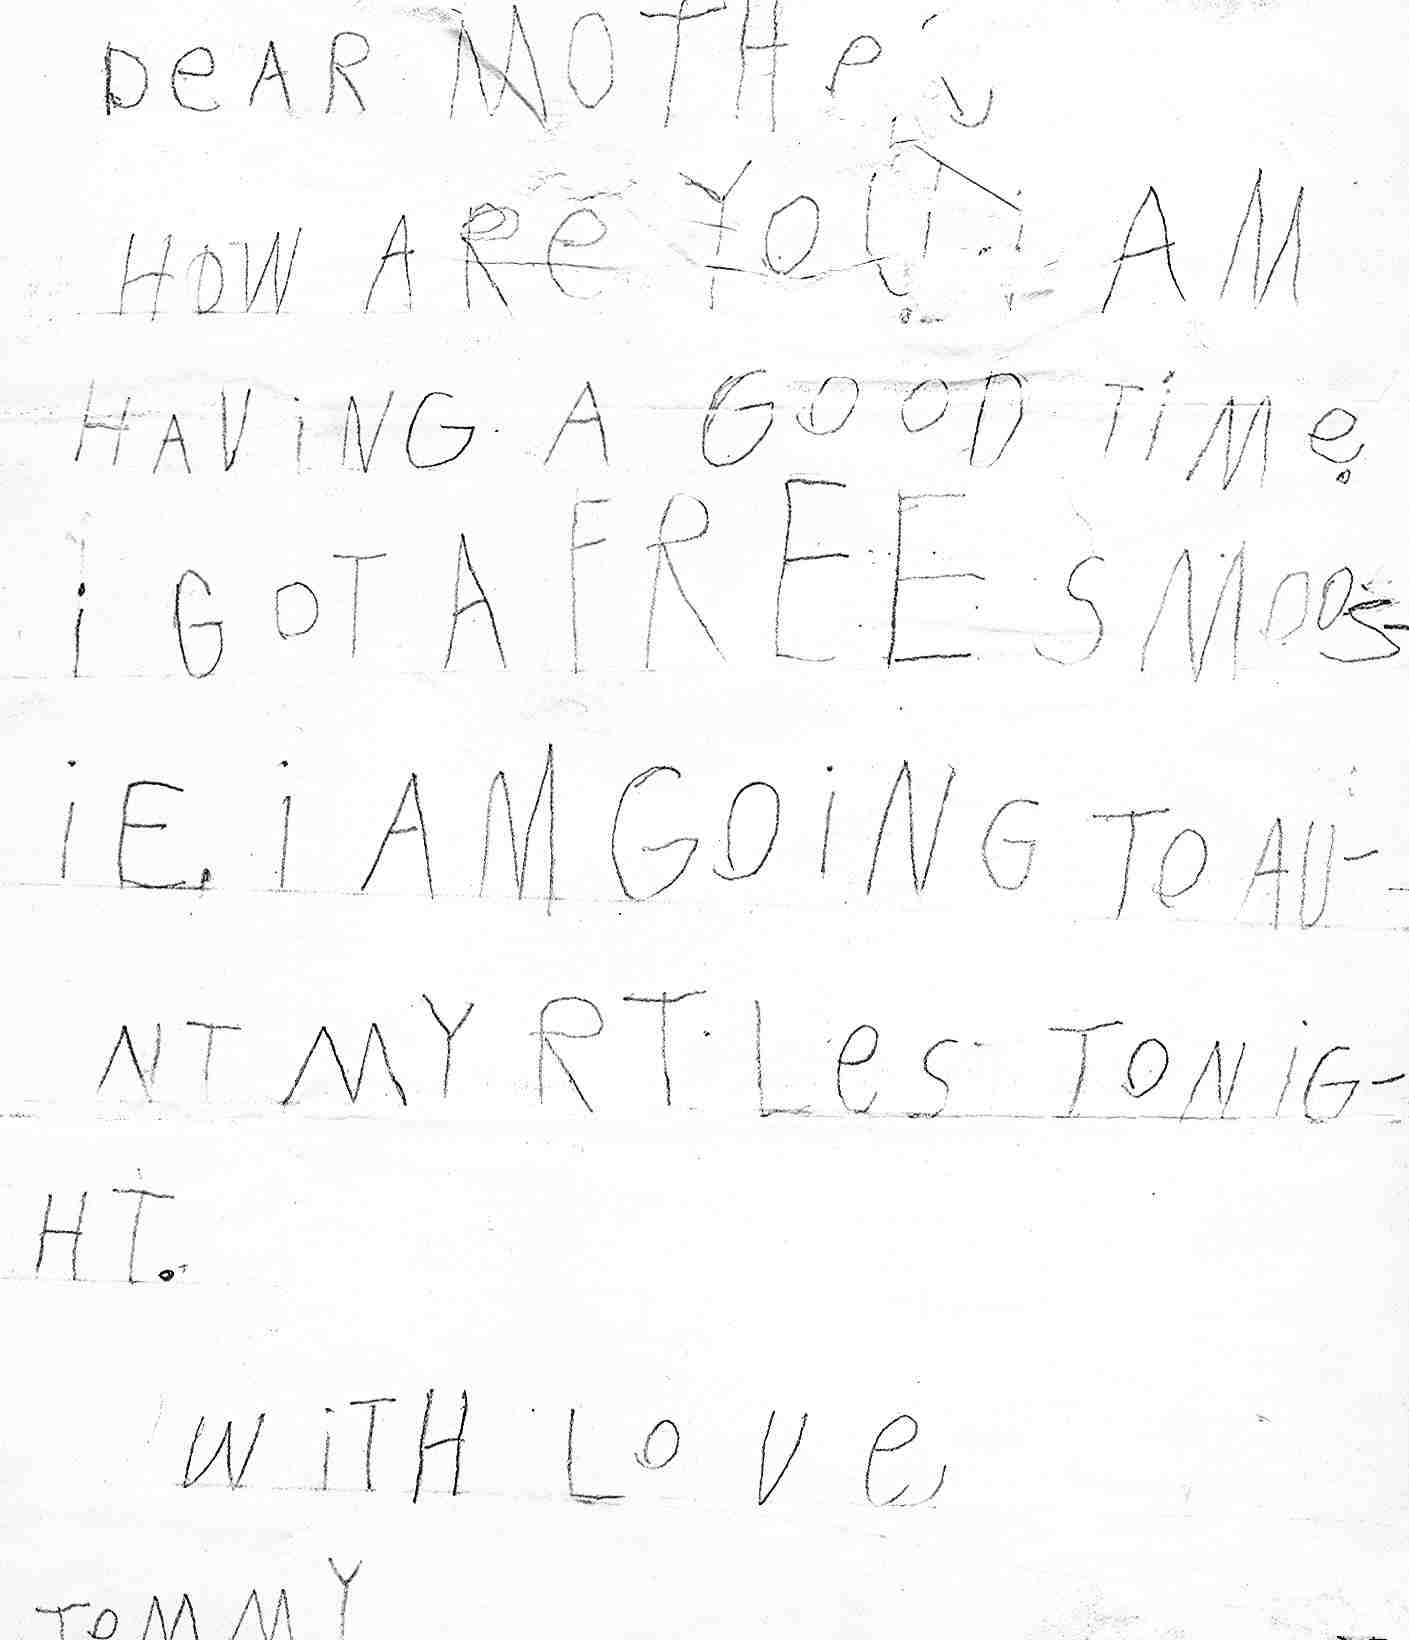 DeAR MOTHeR
HOW ARe YOU. i AM
HAViNG A GOOD TiMe.
i GOT A FREE SMOOS
iE. i AM GOiNG TO AU-
NT MYRTLeS TONiG-
HT.
WiTH LOVe
TOMMY